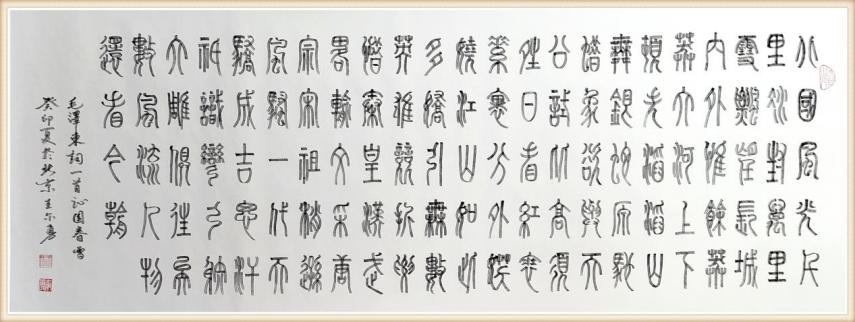 北國風光千
里冰封萬里
雪飄望長城
内外惟餘莽
莽大河上下
頓失滔滔山
舞銀蛇原馳
蜡象欲與天
公試比高須
晴日看紅裝
素裹分外妖
嬈江山如此
多嬌引無數
英雄競折腰
惜秦皇漢武
略輸文采唐
宗宋祖稍遜
風騷一代天
驕成吉思汗
祇識彎弓射
大雕俱往矣
數風流人物
還看今朝
毛澤東詞一首沁園春雪
癸卯夏於北京王